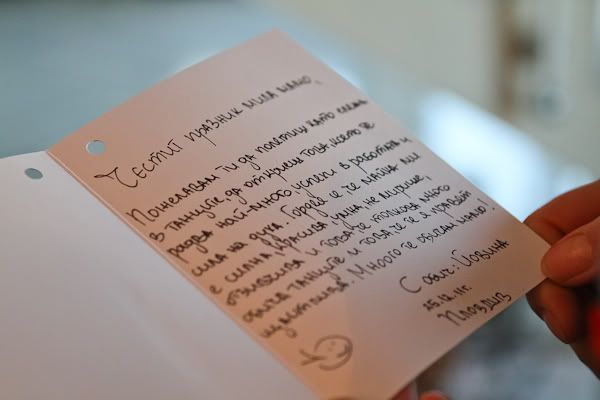 Честит празник мила мамо,
Пожелавам ти да полетиш като
в танците, да откриеш това, което те
радва най-много, успехи в работата и
сила на духа. Гордея се че майка ми
е силна, красива, умна, не мърши,
отзивчива и това че толкова много
обича танците и това че те я правят
щастлива. Много те обичам мамо!
С обич: Йовина
25.12.11г.
Пловдив